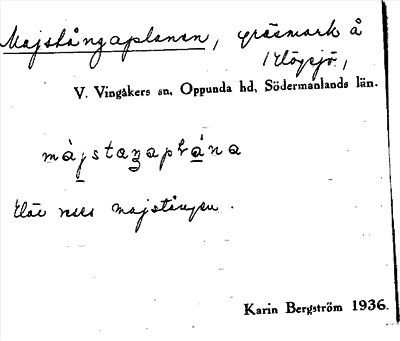 Majstångaplanen, gräsmark å
Högsjö,
V. Vingåkers sn, Oppunda hd, Södermanlands län.
màjstaŋaplána
där res majstången.
Karin Bergström 1936.